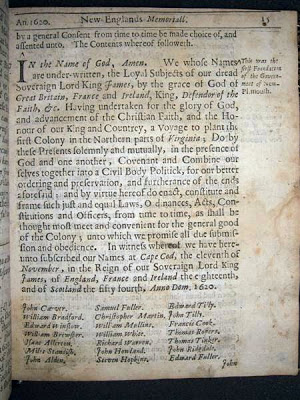 An. 1620. New-Englands Memoriall. 15
by a general Consent from time to time be made choice of, and
assented unto. The Contents whereof followeth.
IN the Name of God, Amen. We whose Names
are under-written, the Loyal Subjects of our dread
Soveraign Lord King James, by the grace of God of
Great Britain, France and Ireland, King, Defendor of the
Faith, &c. Having undertaken for the glory of God,
and advancement of the Christian Faith, and the Ho-
nour of our King and Countrey, a Voyage to plant the
first Colony in the Northern parts of Virginia; Do by
these Presents solemnly and mutually, in the presence of
God and one another, Covenant and Combine our
selves together into a Civil Body Politick, for our better
ordering and preservation, and furtherance of the ends
aforesaid: and by virtue hereof do enact, constitute and
frame such just and equal Laws, Ordinances, Acts, Con-
stitutions and Officers, from time to time, as shall be
thought most meet and convenient for the general good
of the Colony; unto which we promise all due submis-
sion and obedience. In witness whereof we have here-
unto subscribed our Names at Cape Cod, the eleventh
of November, in the Reign of our Soveraign Lord King
James, of England, France and Ireland the eighteenth,
and of Scotland the fifty fourth, Anno Dom. 1620.
This was the
first Foundation
of the Govern-
ment of New-
Plimouth.
John Carver. Samuel Fuller. Edward Tilly.
William Bradford. Christopher Martin. John Tilly.
Edward Winslow. William Mullins. Francis Cook.
William Brewster. William White. Thomas Rogers.
Isaac Allerton. Richard Warren. Thomas Tinker.
Miles Standish. John Howland. John Ridgdale.
John Alden. Steven Hopkins. Edward Fuller.
John